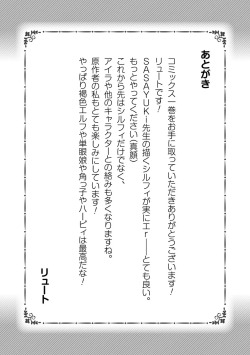 あとがき
コミックス一巻をお手に取っていただきありがとうございます！
リュートです！
SASAYUKi先生の描くシルフィが実にエr――とても良い。
もっとやってください（真顔）
これから先はシルフィだけでなく、
アイラや他のキャラクターとの絡みも多くなりますね。
原作者の私もとても楽しみにしています！
やっぱり褐色エルフや単眼娘や角っ子やハーピィは最高だな！
リュート